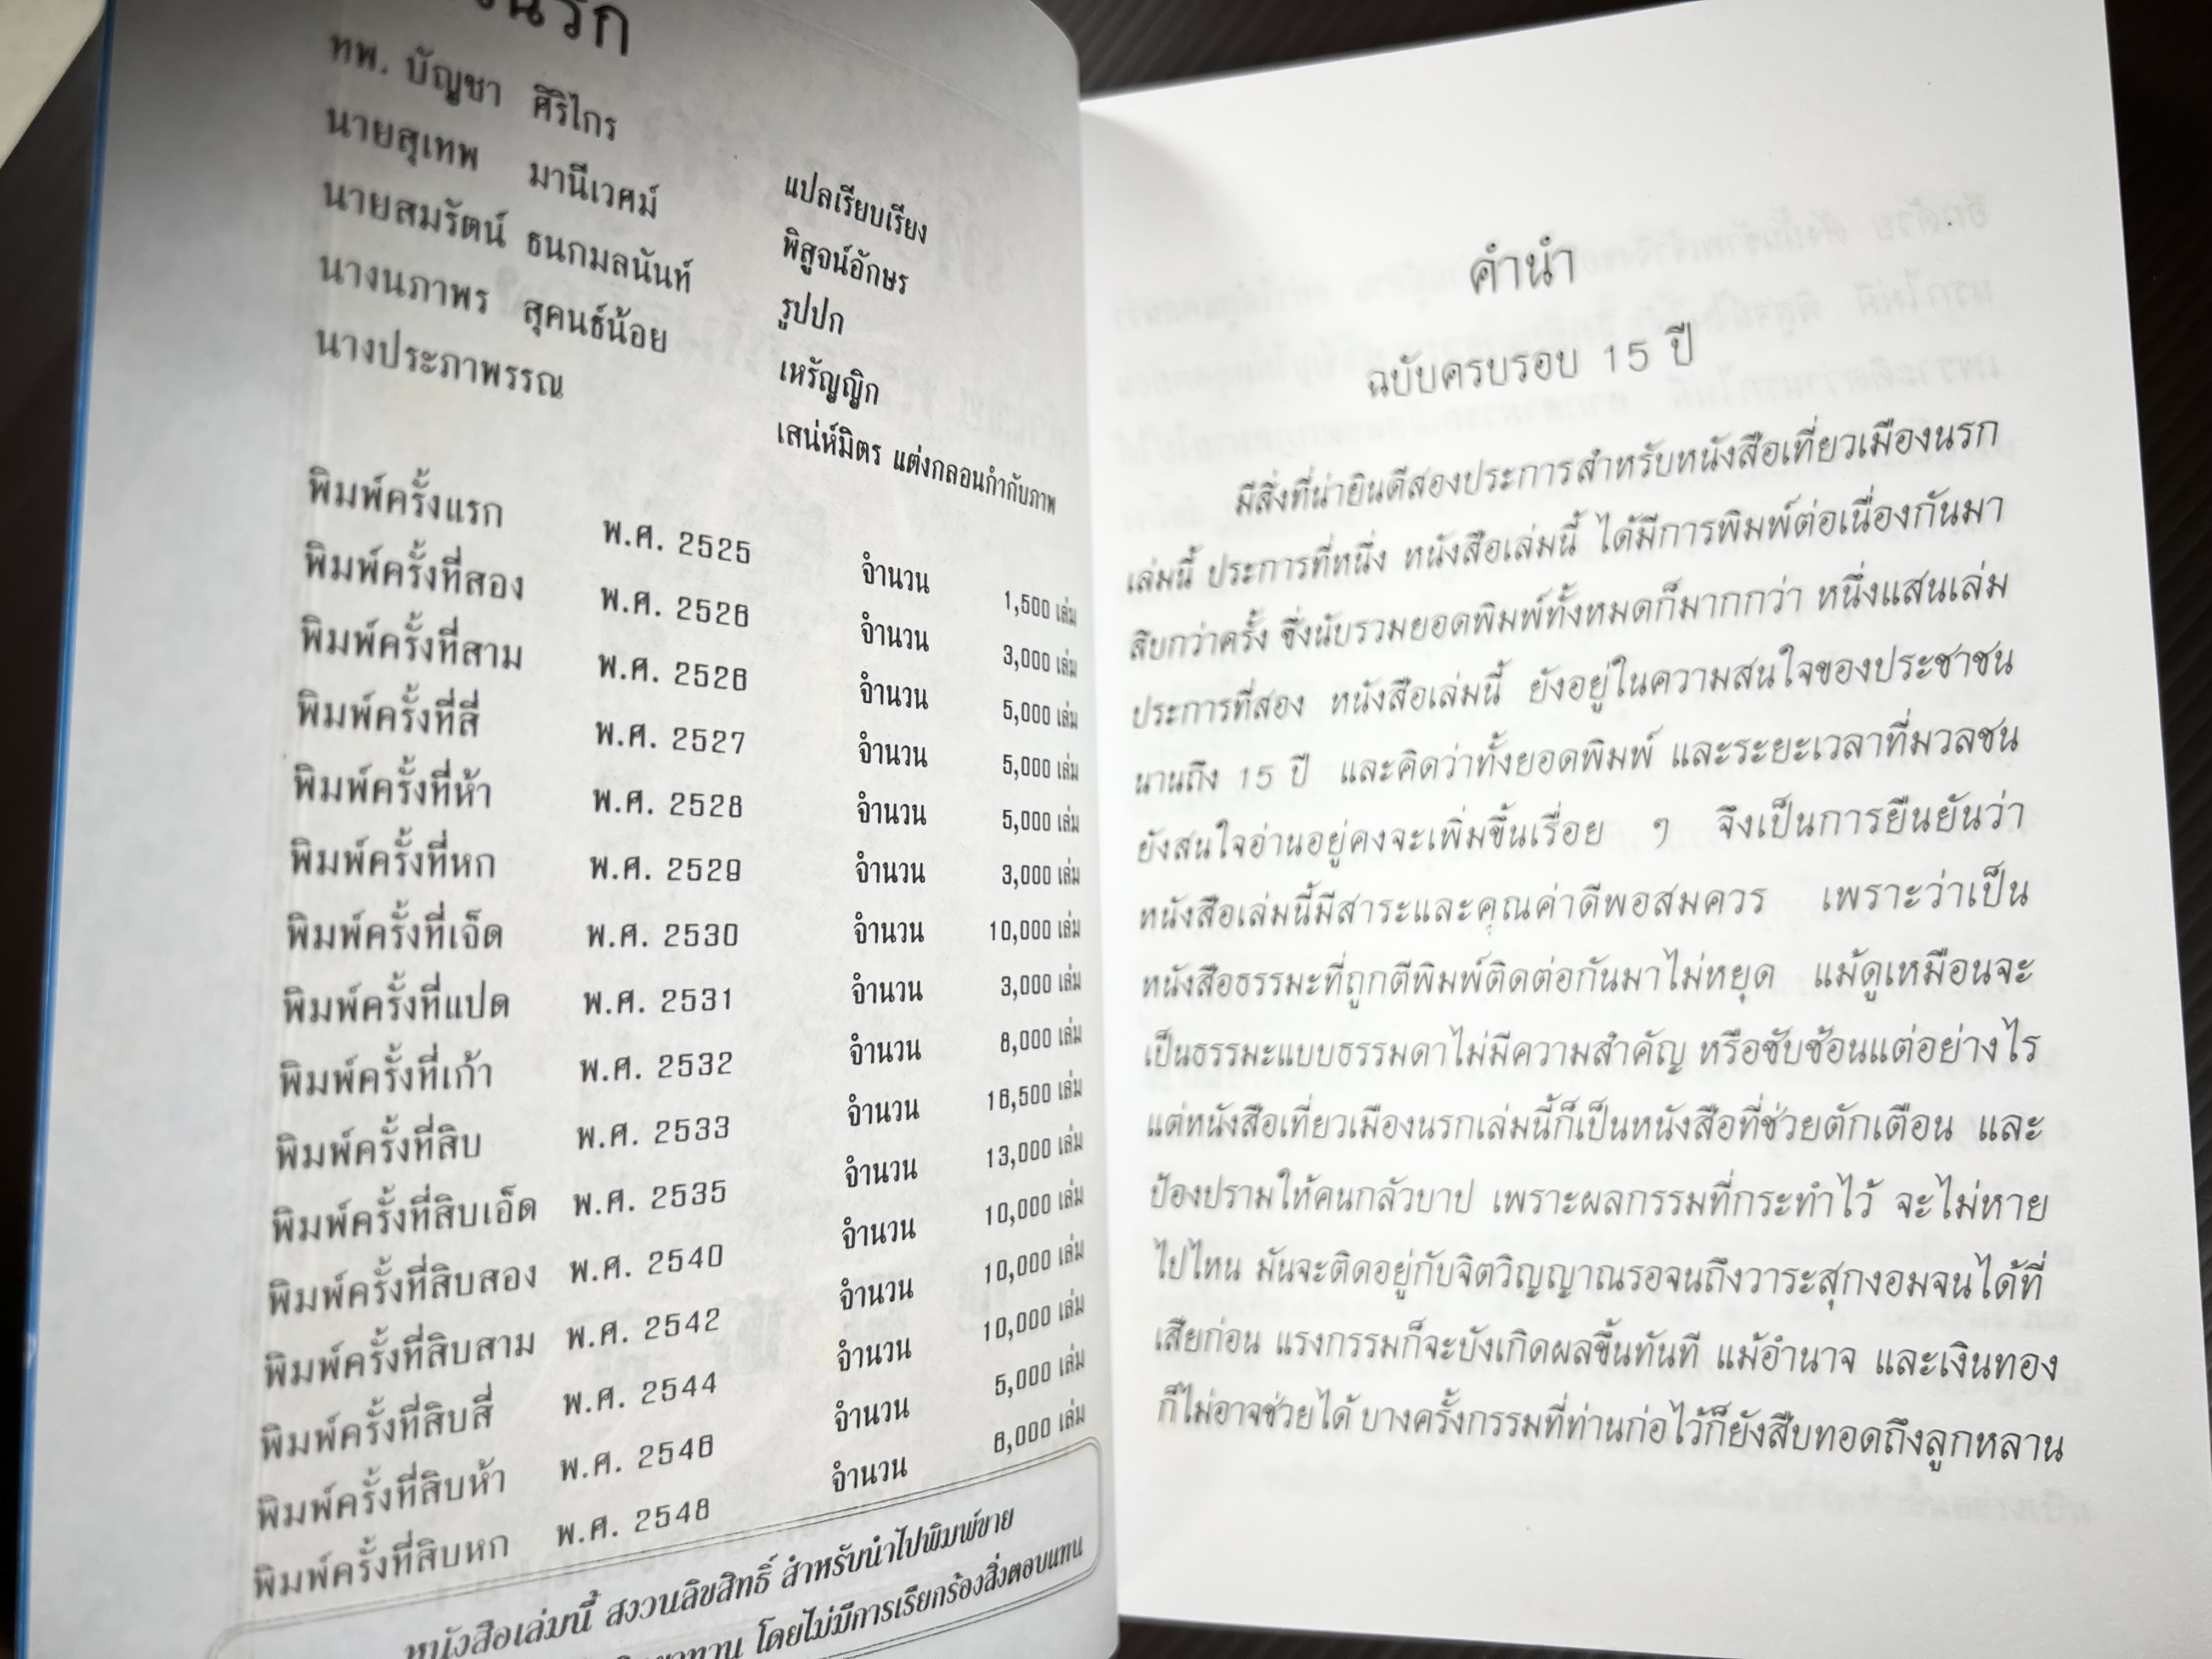 ทพ. บัญชา ศิริไกร แปลเรียบเรียง
นายสุเทพ มานีเวศม์ พิสูจน์อักษร
นายสมรัตน์ ธนกมลนันท์ รูปปก
นางนภาพร สุคนธ์น้อย เหรัญญิก
นางประภาพรรณ เสน่ห์มิตร แต่งกลอนกำกับภาพ
พิมพ์ครั้งแรก พ.ศ. 2525 จำนวน 1,500 เล่ม
พิมพ์ครั้งที่สอง พ.ศ. 2526 จำนวน 3,000 เล่ม
พิมพ์ครั้งที่สาม พ.ศ. 2526 จำนวน 5,000 เล่ม
พิมพ์ครั้งที่สี่ พ.ศ. 2527 จำนวน 5,000 เล่ม
พิมพ์ครั้งที่ห้า พ.ศ. 2528 จำนวน 5,000 เล่ม
พิมพ์ครั้งที่หก พ.ศ. 2529 จำนวน 3,000 เล่ม
พิมพ์ครั้งที่เจ็ด พ.ศ. 2530 จำนวน 10,000 เล่ม
พิมพ์ครั้งที่แปด พ.ศ. 2531 จำนวน 3,000 เล่ม
พิมพ์ครั้งที่เก้า พ.ศ. 2532 จำนวน 8,000 เล่ม
พิมพ์ครั้งที่สิบ พ.ศ. 2533 จำนวน 16,500 เล่ม
พิมพ์ครั้งที่สิบเอ็ด พ.ศ. 2535 จำนวน 13,000 เล่ม
พิมพ์ครั้งที่สิบสอง พ.ศ. 2540 จำนวน 10,000 เล่ม
พิมพ์ครั้งที่สิบสาม พ.ศ. 2542 จำนวน 10,000 เล่ม
พิมพ์ครั้งที่สิบสี่ พ.ศ. 2544 จำนวน 10,000 เล่ม
พิมพ์ครั้งที่สิบห้า พ.ศ. 2546 จำนวน 5,000 เล่ม
พิมพ์ครั้งที่สิบหก พ.ศ. 2548 จำนวน 6,000 เล่ม
หนังสือเล่มนี้ สงวนลิขสิทธิ์ สำหรับนำไปพิมพ์ขาย
โดยไม่มีการเรียกร้องสิ่งตอบแทน
คำนำ
ฉบับครบรอบ 15 ปี
มีสิ่งที่น่ายินดีสองประการสำหรับหนังสือเที่ยวเมืองนรก
เล่มนี้ ประการที่หนึ่ง หนังสือเล่มนี้ ได้มีการพิมพ์ต่อเนื่องกันมา
สิบกว่าครั้ง ซึ่งนับรวมยอดพิมพ์ทั้งหมดก็มากกว่า หนึ่งแสนเล่ม
ประการที่สอง หนังสือเล่มนี้ ยังอยู่ในความสนใจของประชาชน
นานถึง 15 ปี และคิดว่าทั้งยอดพิมพ์ และระยะเวลาที่มวลชน
ยังสนใจอ่านอยู่คงจะเพิ่มขึ้นเรื่อย ๆ จึงเป็นการยืนยันว่า
หนังสือเล่มนี้มีสาระและคุณค่าดีพอสมควร เพราะว่าเป็น
หนังสือธรรมะที่ถูกตีพิมพ์ติดต่อกันมาไม่หยุด แม้ดูเหมือนจะ
เป็นธรรมะแบบธรรมดาไม่มีความสำคัญ หรือซับซ้อนแต่อย่างไร
แต่หนังสือเที่ยวเมืองนรกเล่มนี้ก็เป็นหนังสือที่ช่วยตักเตือน และ
ป้องปรามให้คนกลัวบาป เพราะผลกรรมที่กระทำไว้ จะไม่หาย
ไปไหน มันจะติดอยู่กับจิตวิญญาณรอจนถึงวาระสุกงอมจนได้ที่
เสียก่อน แรงกรรมก็จะบังเกิดผลขึ้นทันที แม้อำนาจ และเงินทอง
ก็ไม่อาจช่วยได้ บางครั้งกรรมที่ท่านก่อไว้ก็ยังสืบทอดถึงลูกหลาน